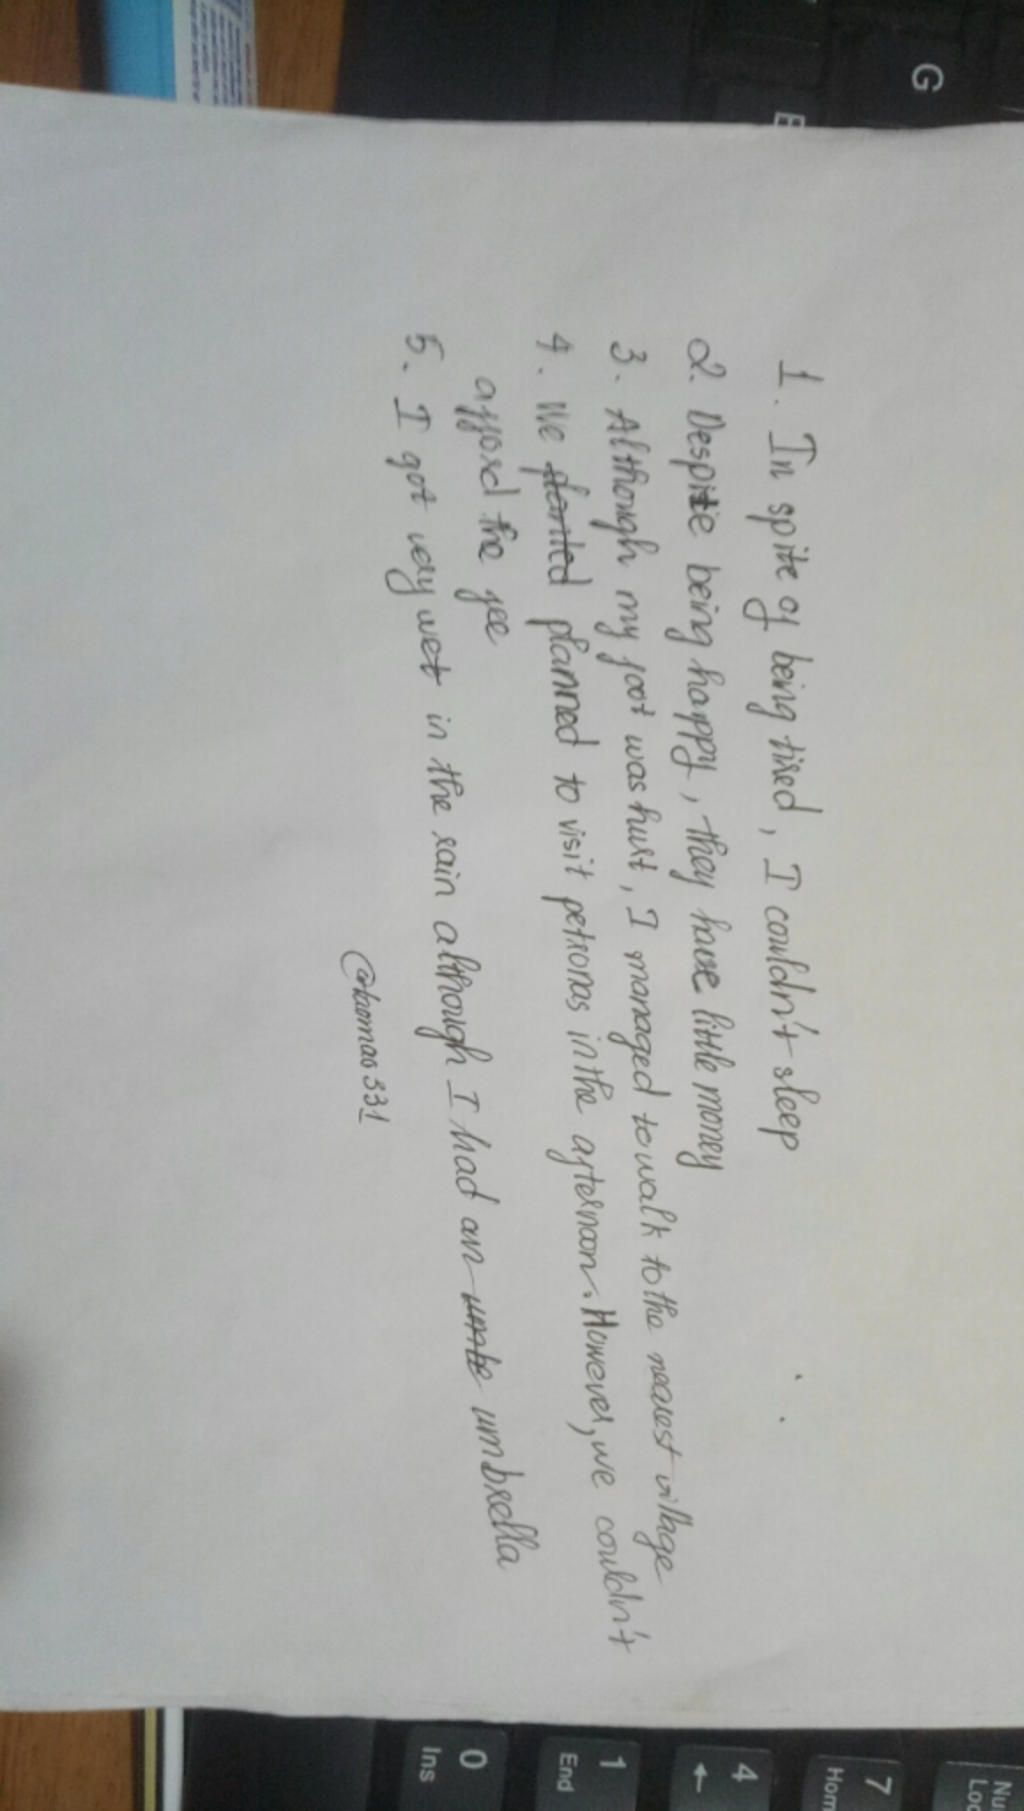 1. In spite of being tired, I couldn't sleep
2. Despite being happy, they have little money
3. Although my foot was hurt, I managed to walk to the nearest village
4. We planted planned to visit petronas in the afternoon. However, we couldn't
afford the fee
5. I got very wet in the rain although I had an umbe umbrella
G
E
Nu
Loc
7
Hom
4
←
1
End
0
Ins